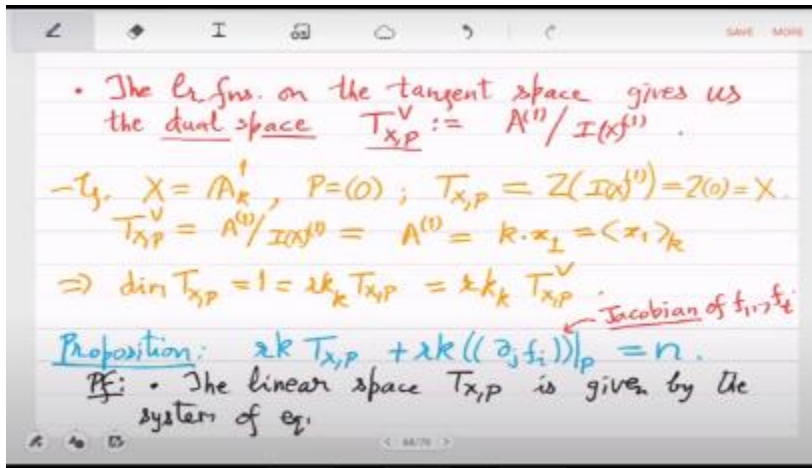 SAVE MORE
• The lr. fns. on the tangent space gives us
the dual space T^∨_{X,P} := A^{(1)}/I(X)^{(1)}.
-Eg. X = A^1_k, P=(0); T_{X,P} = Z(I(X)^{(1)}) = Z(0) = X.
T^∨_{X,P} = A^{(1)}/I(X)^{(1)} = A^{(1)} = k·x_1 = <x_1>_k
⇒ dim T_{X,P} = 1 = rk_k T_{X,P} = rk_k T^∨_{X,P}.
Jacobian of f_1,..,f_t
Proposition: rk T_{X,P} + rk((∂_j f_i))|_P = n.
Pf: • The linear space T_{X,P} is given by the
system of eq.
68/70